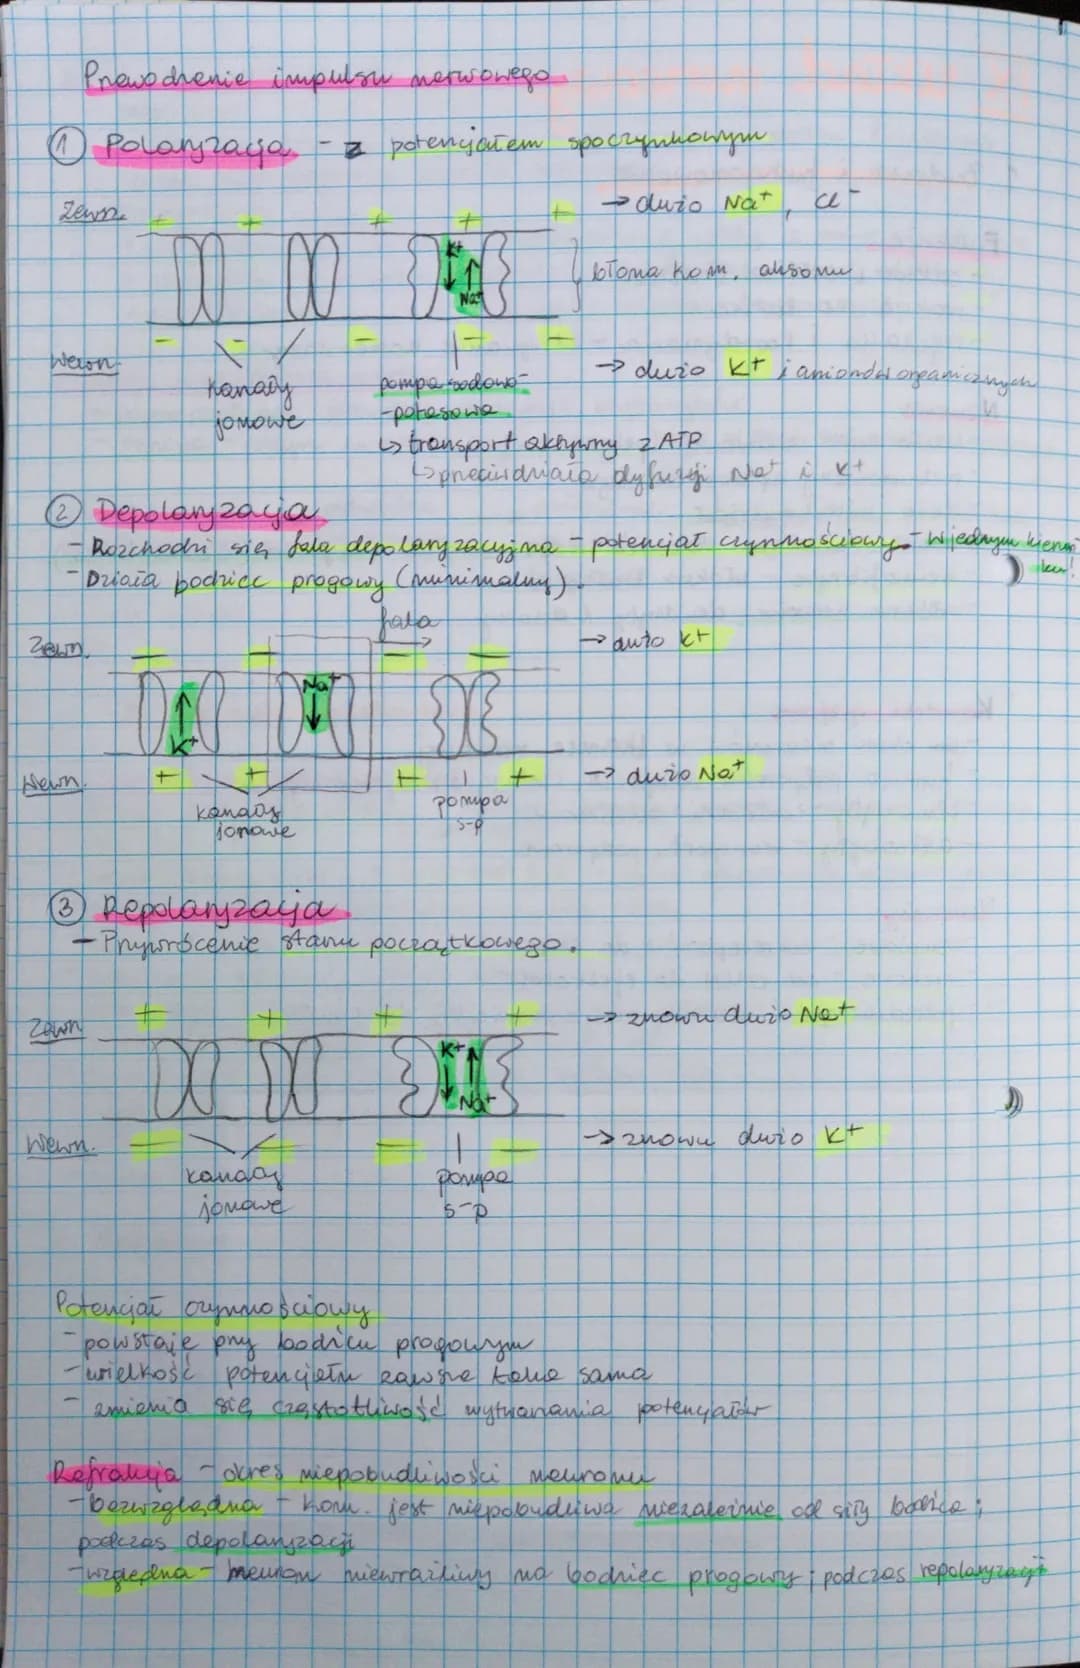 Przewodzenie impulsu nerwowego
① Polaryzacja - z potencjałem spoczynkowym
Zewn.
+ + + + +
→ dużo Na+, Cl-
K+
Na+
błona kom. aksonu
- - - - -
Wewn.
→ dużo K+ i anionów organicznych
kanały jonowe
pompa sodowo-
-potasowa
↳ transport aktywny z ATP
↳ przeciwdziała dyfuzji Na+ i K+
② Depolaryzacja
- Rozchodzi się fala depolaryzacyjna - potencjał czynnościowy - w jednym kierun
ku!
- Działa bodziec progowy (minimalny).
fala
Zewn.
- - - -
→ dużo K+
K+
Na+
Wewn.
+ + + +
→ dużo Na+
kanały
jonowe
pompa
s-p
③ Repolaryzacja
- Przywrócenie stanu początkowego.
Zewn
+ + + +
→ znowu dużo Na+
K+
Na+
Wewn.
- - - -
→ znowu dużo K+
kanały
jonowe
pompa
s-p
Potencjał czynnościowy
- powstaje przy bodźcu progowym
- wielkość potencjału zawsze taka sama
- zmienia się częstotliwość wytwarzania potencjałów
Refrakcja - okres niepobudliwości neuronu
- bezwzględna - kom. jest niepobudliwa niezależnie od siły bodźca;
podczas depolaryzacji
- względna - neuron niewrażliwy na bodziec progowy; podczas repolaryzacji